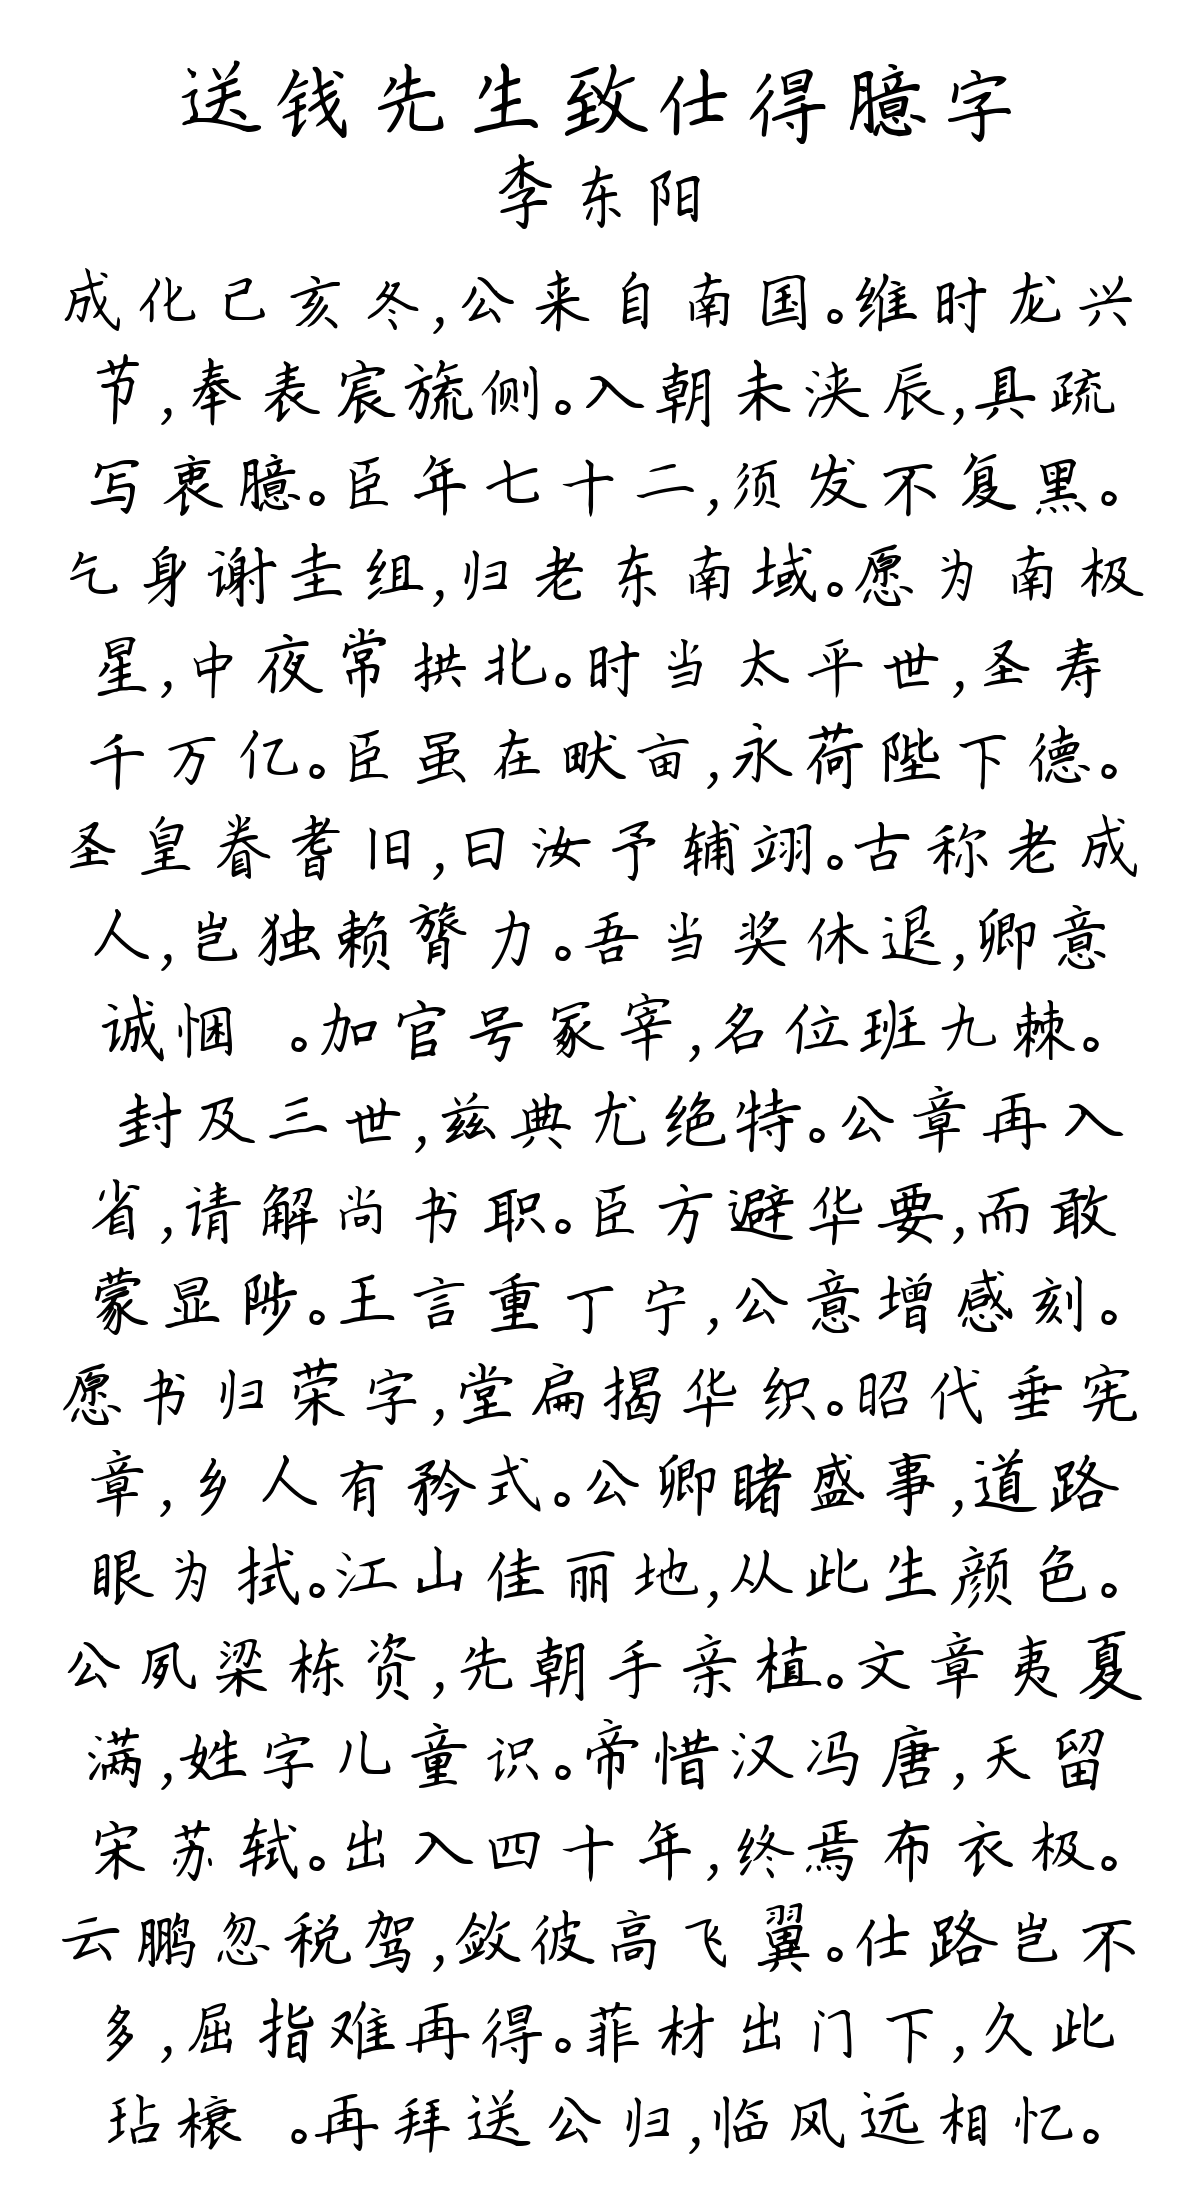 送钱先生致仕得臆字
李东阳
成化己亥冬,公来自南国。维时龙兴
节,奉表宸旒侧。入朝未浃辰,具疏
写衷臆。臣年七十二,须发不复黑。
乞身谢圭组,归老东南域。愿为南极
星,中夜常拱北。时当太平世,圣寿
千万亿。臣虽在畎亩,永荷陛下德。
圣皇眷耆旧,曰汝予辅翊。古称老成
人,岂独赖膂力。吾当奖休退,卿意
诚悃 。加官号冢宰,名位班九棘。
封及三世,兹典尤绝特。公章再入
省,请解尚书职。臣方避华要,而敢
蒙显陟。王言重丁宁,公意增感刻。
愿书归荣字,堂扁揭华织。昭代垂宪
章,乡人有矜式。公卿睹盛事,道路
眼为拭。江山佳丽地,从此生颜色。
公夙梁栋资,先朝手亲植。文章夷夏
满,姓字儿童识。帝惜汉冯唐,天留
宋苏轼。出入四十年,终焉布衣极。
云鹏忽税驾,敛彼高飞翼。仕路岂不
多,屈指难再得。菲材出门下,久此
玷榱 。再拜送公归,临风远相忆。